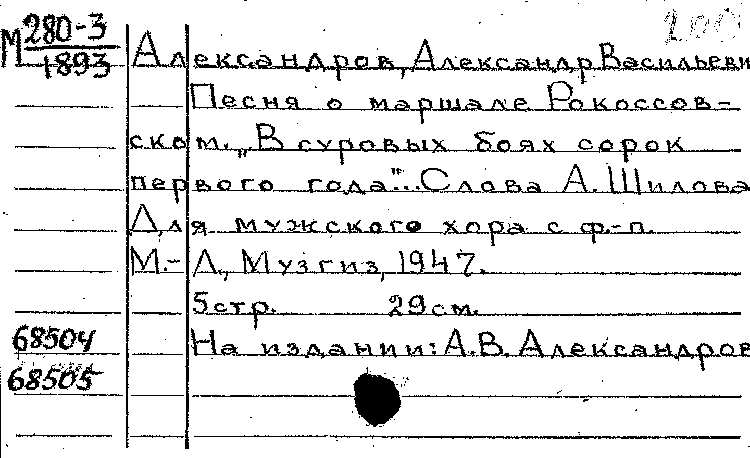 200
М 280-3
1893
Александров, Александр Васильеви
Песня о маршале Рокоссов-
ском. „В суровых боях сорок
первого года"... Слова А. Шилова
Для мужского хора с ф.-п.
М.-Л., Музгиз, 1947.
5 стр. 29 см.
68504 На издании: А.В. Александров
68505